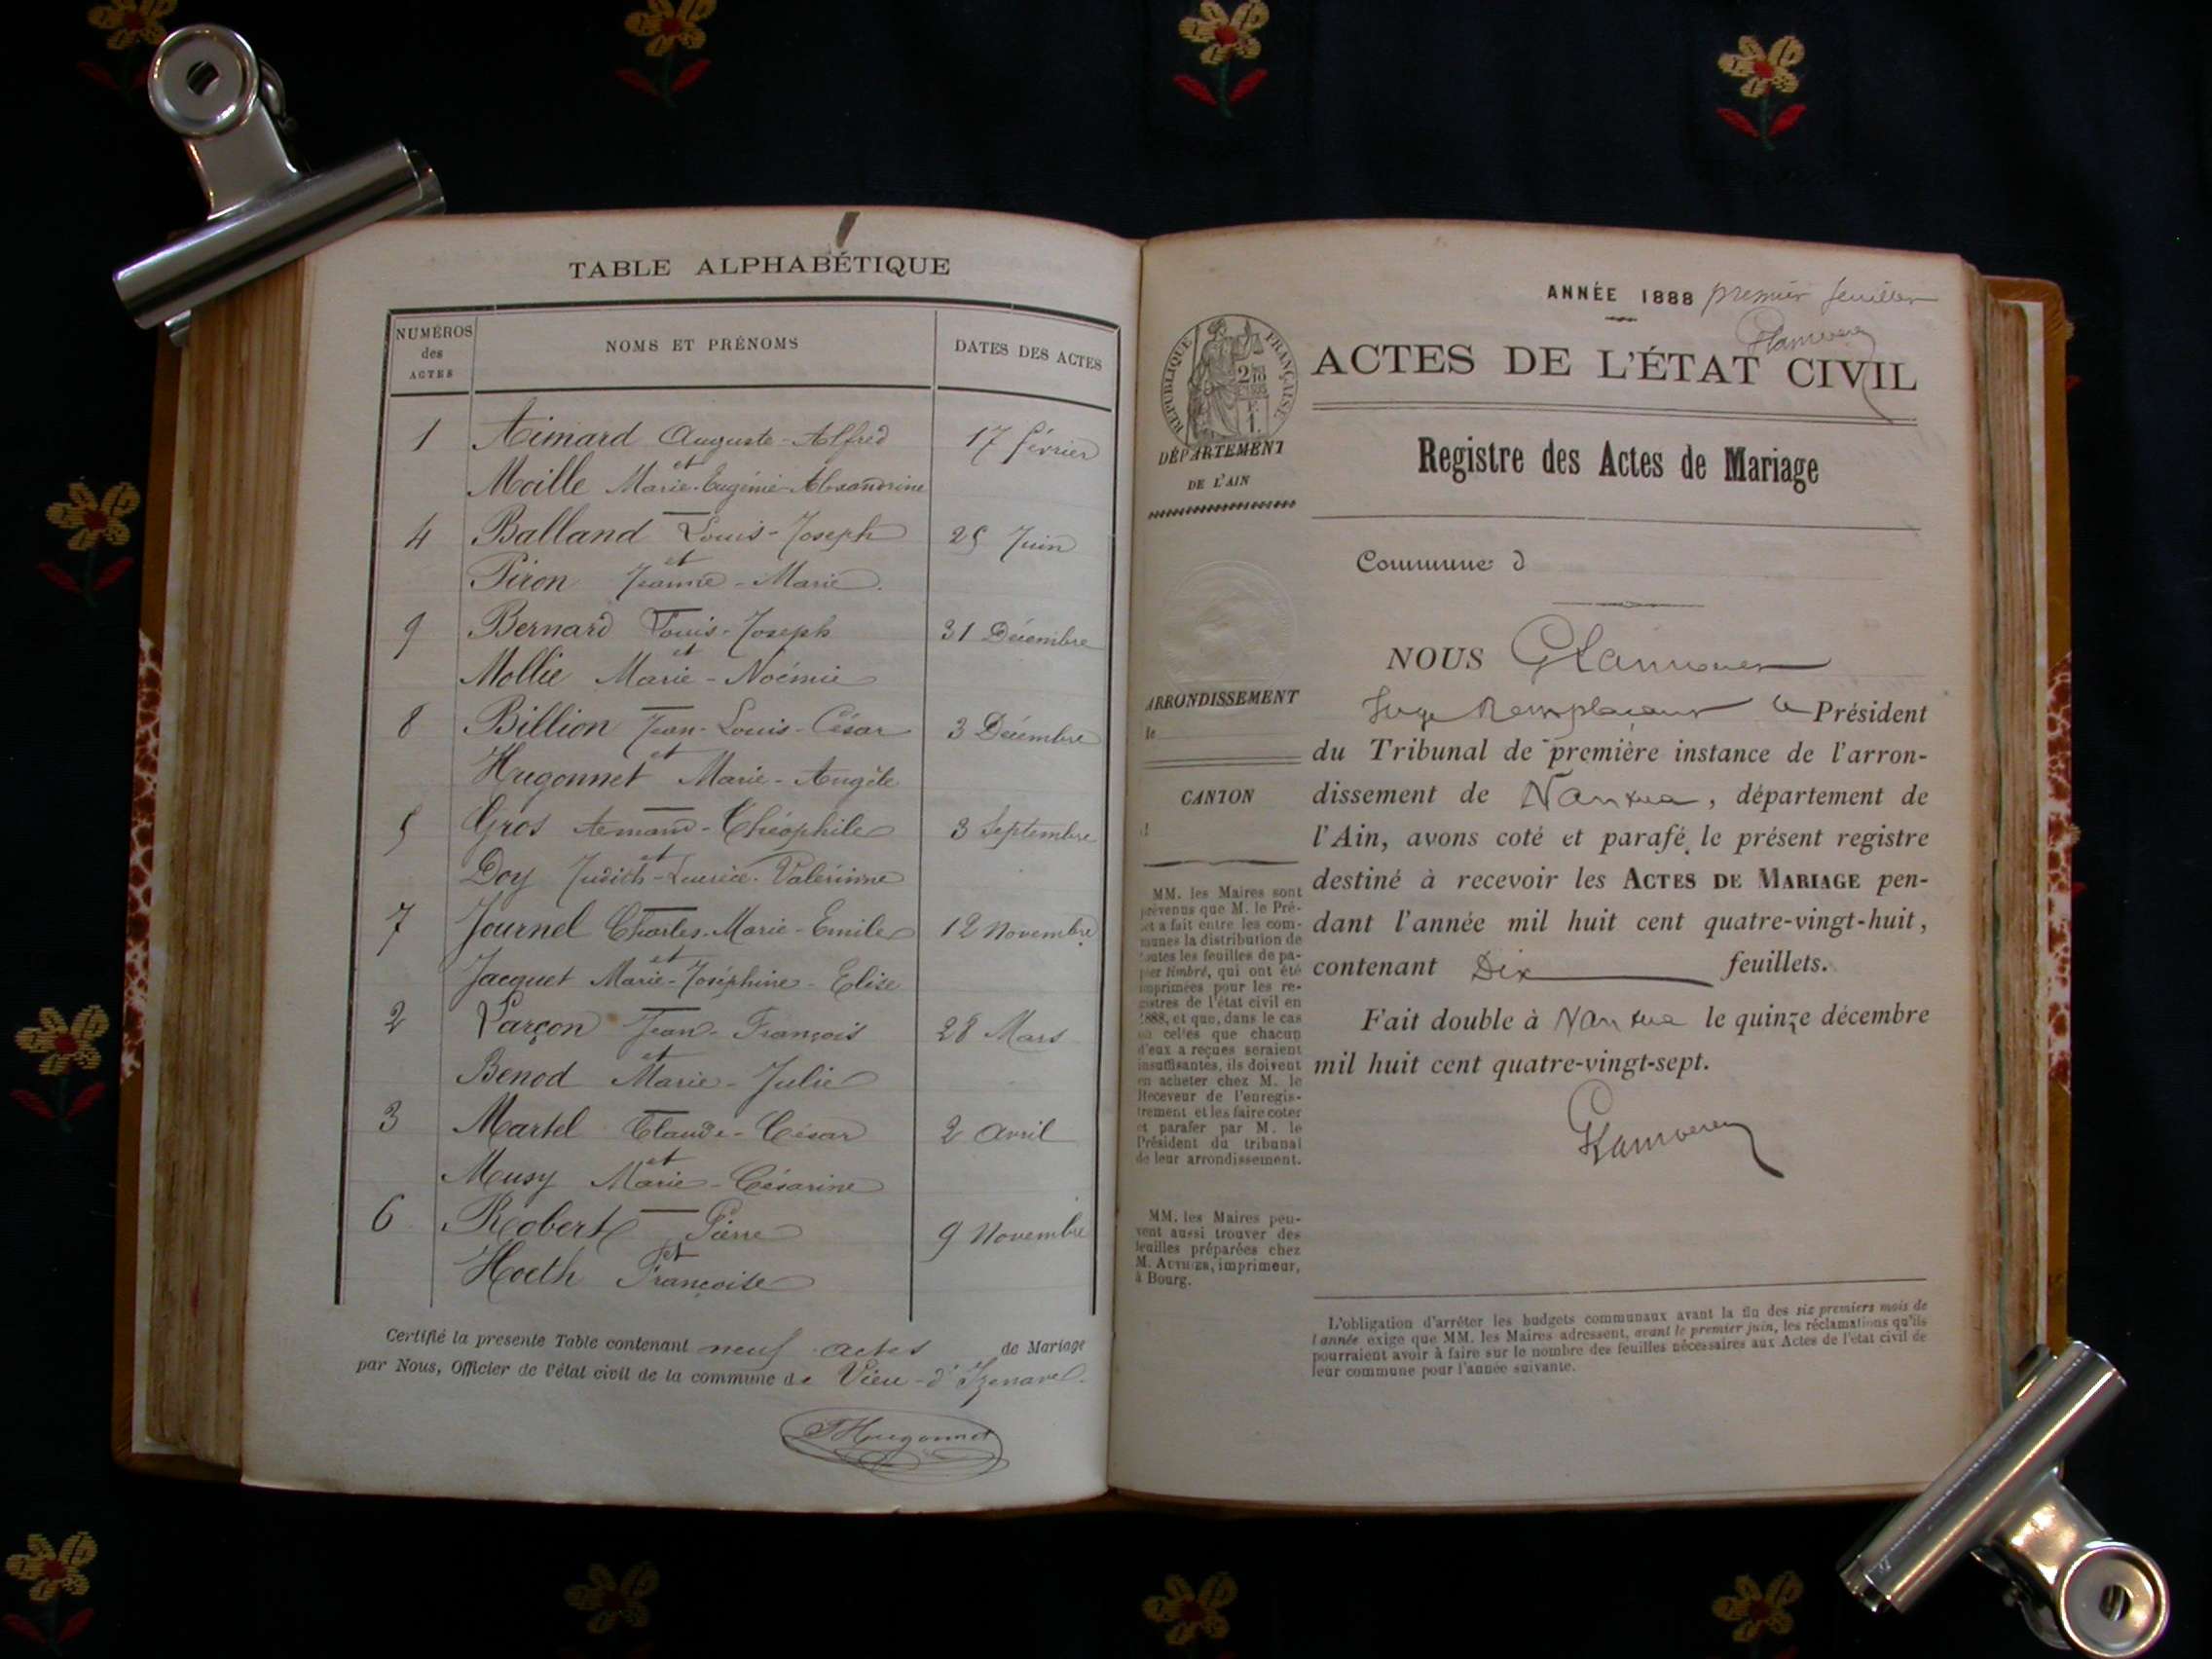 TABLE ALPHABÉTIQUE
NUMÉROS des ACTES
NOMS ET PRÉNOMS
DATES DES ACTES
1 Aimard Auguste-Alfred 17 février
et
Moille Marie-Eugénie-Alexandrine
4 Balland Louis-Joseph 25 Juin
et
Piron Jeanne-Marie.
9 Bernard Louis-Joseph 31 Décembre
et
Mollie Marie-Noémie
8 Billion Jean-Louis-César 3 Décembre
et
Hugonnet Marie-Angèle
5 Gros Armand-Théophile 3 Septembre
et
Doy Judith- Valérinne
7 Journel Charles-Marie-Emile 12 Novembre
et
Jacquet Marie-Joséphine-Elise
2 Larçon Jean-François 28 Mars
et
Benod Marie-Julie
3 Martel Claude-César 2 Avril
et
Musy Marie-Césarine
6 Robert Pierre 9 Novembre
et
Hoeth Françoise
Certifié la presente Table contenant neuf actes de Mariage
par Nous, Officier de l'état civil de la commune de Vieu-d'Izenave.
Hugonnet
ANNÉE 1888 premier feuillet
RÉPUBLIQUE FRANÇAISE
ACTES DE L'ÉTAT CIVIL
DÉPARTEMENT
DE L'AIN
Registre des Actes de Mariage
Commune d
NOUS
Juge Remplaçant le Président
du Tribunal de première instance de l'arron-
dissement de Nantua, département de
l'Ain, avons coté et parafé le présent registre
destiné à recevoir les ACTES DE MARIAGE pen-
dant l'année mil huit cent quatre-vingt-huit,
contenant Dix feuillets.
Fait double à Nantua le quinze décembre
mil huit cent quatre-vingt-sept.
ARRONDISSEMENT
CANTON
MM. les Maires sont
prévenus que M. le Pré-
et a fait entre les com-
munes la distribution de
toutes les feuilles de pa-
pier timbré, qui ont été
imprimées pour les re-
gistres de l'état civil en
1888, et que, dans le cas
où celles que chacun
d'eux a reçues seraient
insuffisantes, ils doivent
en acheter chez M. le
Receveur de l'enregis-
trement et les faire coter
et parafer par M. le
Président du tribunal
de leur arrondissement.
MM. les Maires peu-
vent aussi trouver des
feuilles préparées chez
M. AUTHIER, imprimeur,
à Bourg.
L'obligation d'arrêter les budgets communaux avant la fin des six premiers mois de
l'année exige que MM. les Maires adressent, avant le premier juin, les réclamations qu'ils
pourraient avoir à faire sur le nombre des feuilles nécessaires aux Actes de l'état civil de
leur commune pour l'année suivante.